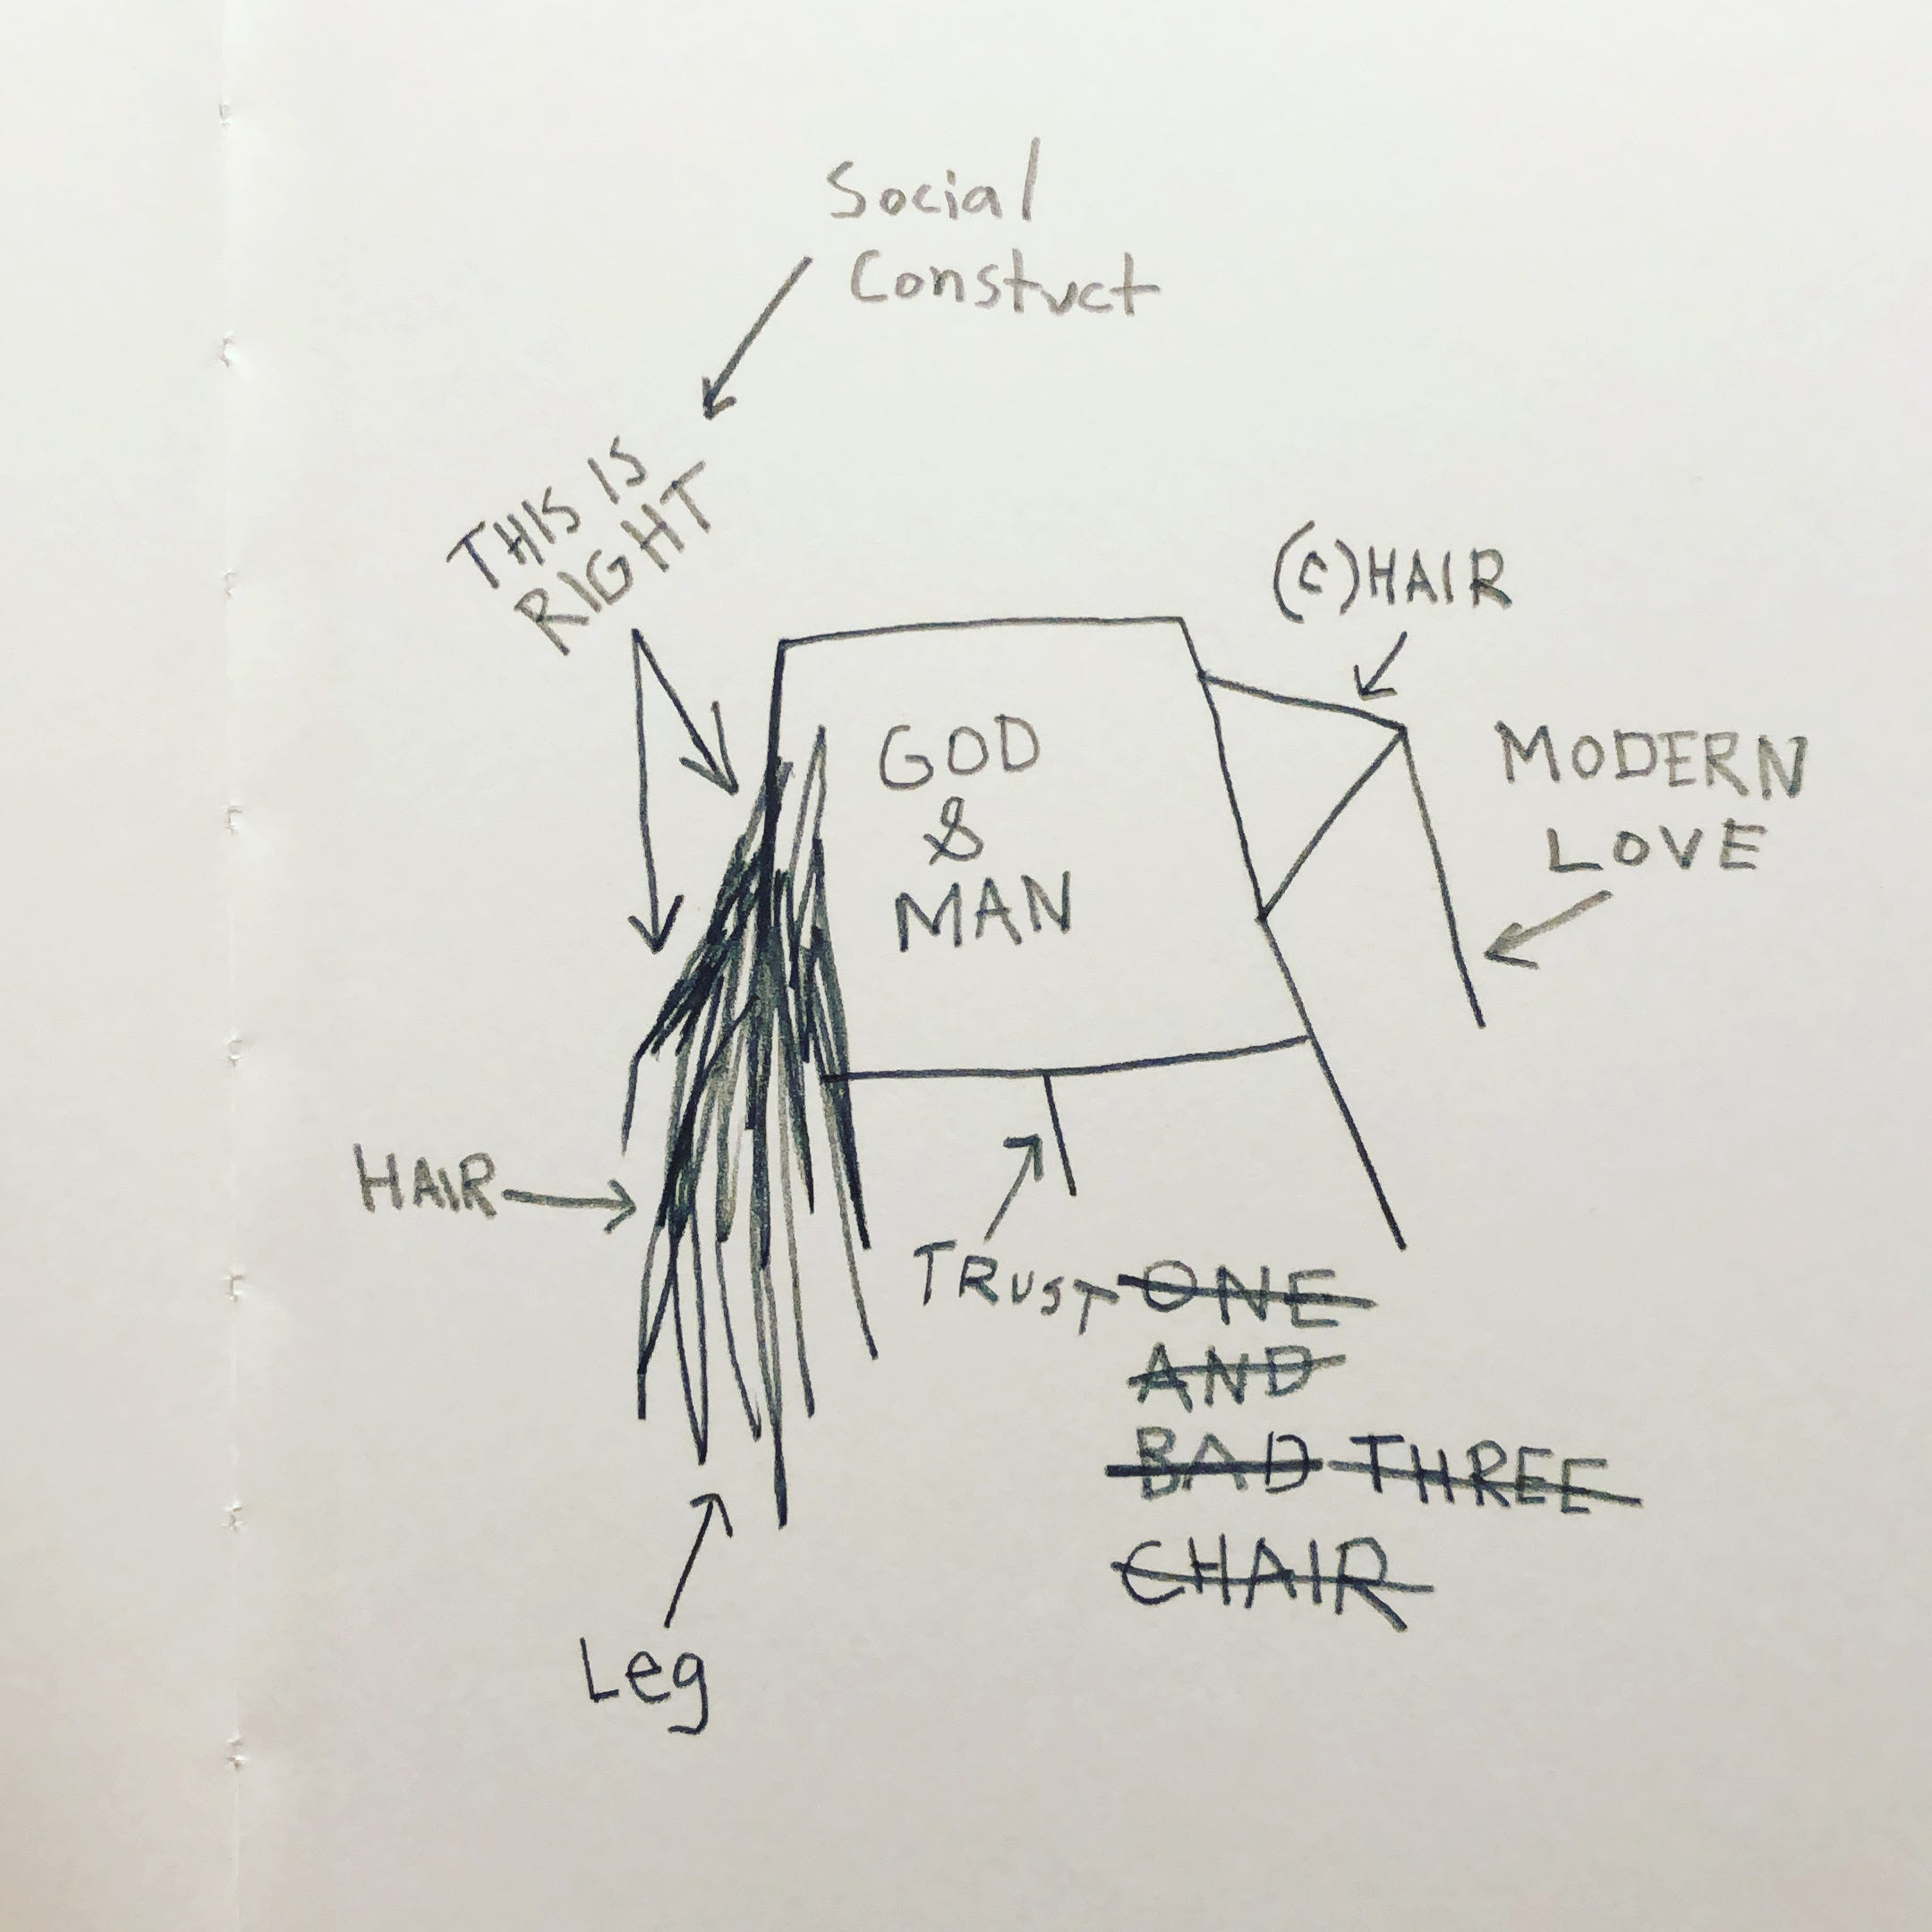 Social
Constuct
THIS IS
RIGHT
(C)HAIR
MODERN
LOVE
GOD
&
MAN
HAIR
TRUST ONE
AND
BAD THREE
CHAIR
Leg